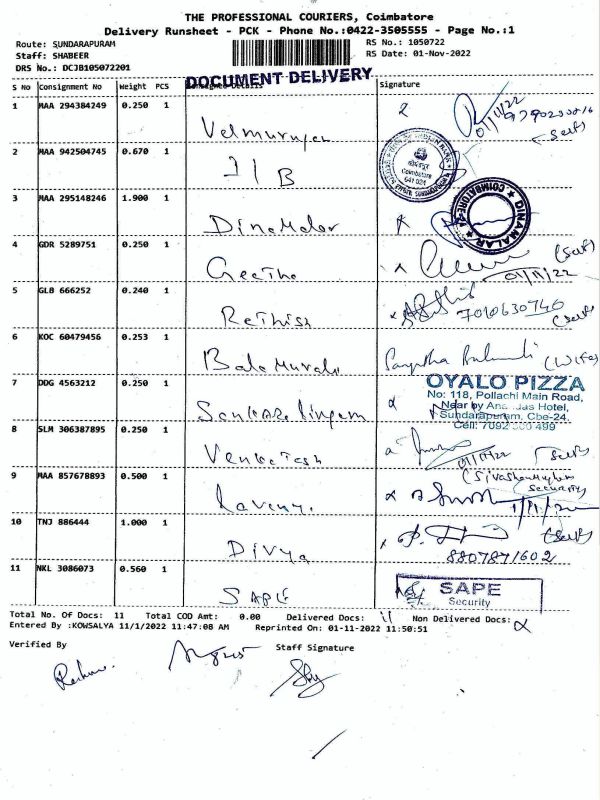 THE PROFESSIONAL COURIERS, Coimbatore
Delivery Runsheet - PCK - Phone No.:0422-3505555 - Page No.:1
Route: SUNDARAPURAM
RS No.: 1050722
Staff: SHABEER
RS Date: 01-Nov-2022
DRS No.: DCJB105072201
DOCUMENT DELIVERY
S No Consignment No Weight PCS Consignee Details Signature
1 MAA 294384249 0.250 1 Velmurugan 01/11/22
(Self)
2 MAA 942504745 0.670 1 Coimbatore 641 024
3 MAA 295148246 1.900 1 Dinamalar DINAMALAR COIMBATORE-24
4 GDR 5289751 0.250 1 Geetha (Self)
01/11/22
5 GLB 666252 0.240 1 Rethish 7010630746
(Self)
6 KOC 60479456 0.253 1 Bala Murali (Wife)
7 DDG 4563212 0.250 1 Sankaralingam OYALO PIZZA
No: 118, Pollachi Main Road,
Near by Anandas Hotel,
Sundarapuram, Cbe-24.
Cell: 7092 499
8 SLM 306387895 0.250 1 Venkatesh 01/11/22 (Self)
9 MAA 857678893 0.500 1 (Security)
10 TNJ 886444 1.000 1 Divya (Self)
8807871602
11 NKL 3086073 0.560 1 SAPE SAPE
Security
Total No. Of Docs: 11 Total COD Amt: 0.00 Delivered Docs: 11 Non Delivered Docs:
Entered By :KOWSALYA 11/1/2022 11:47:08 AM Reprinted On: 01-11-2022 11:50:51
Verified By Staff Signature